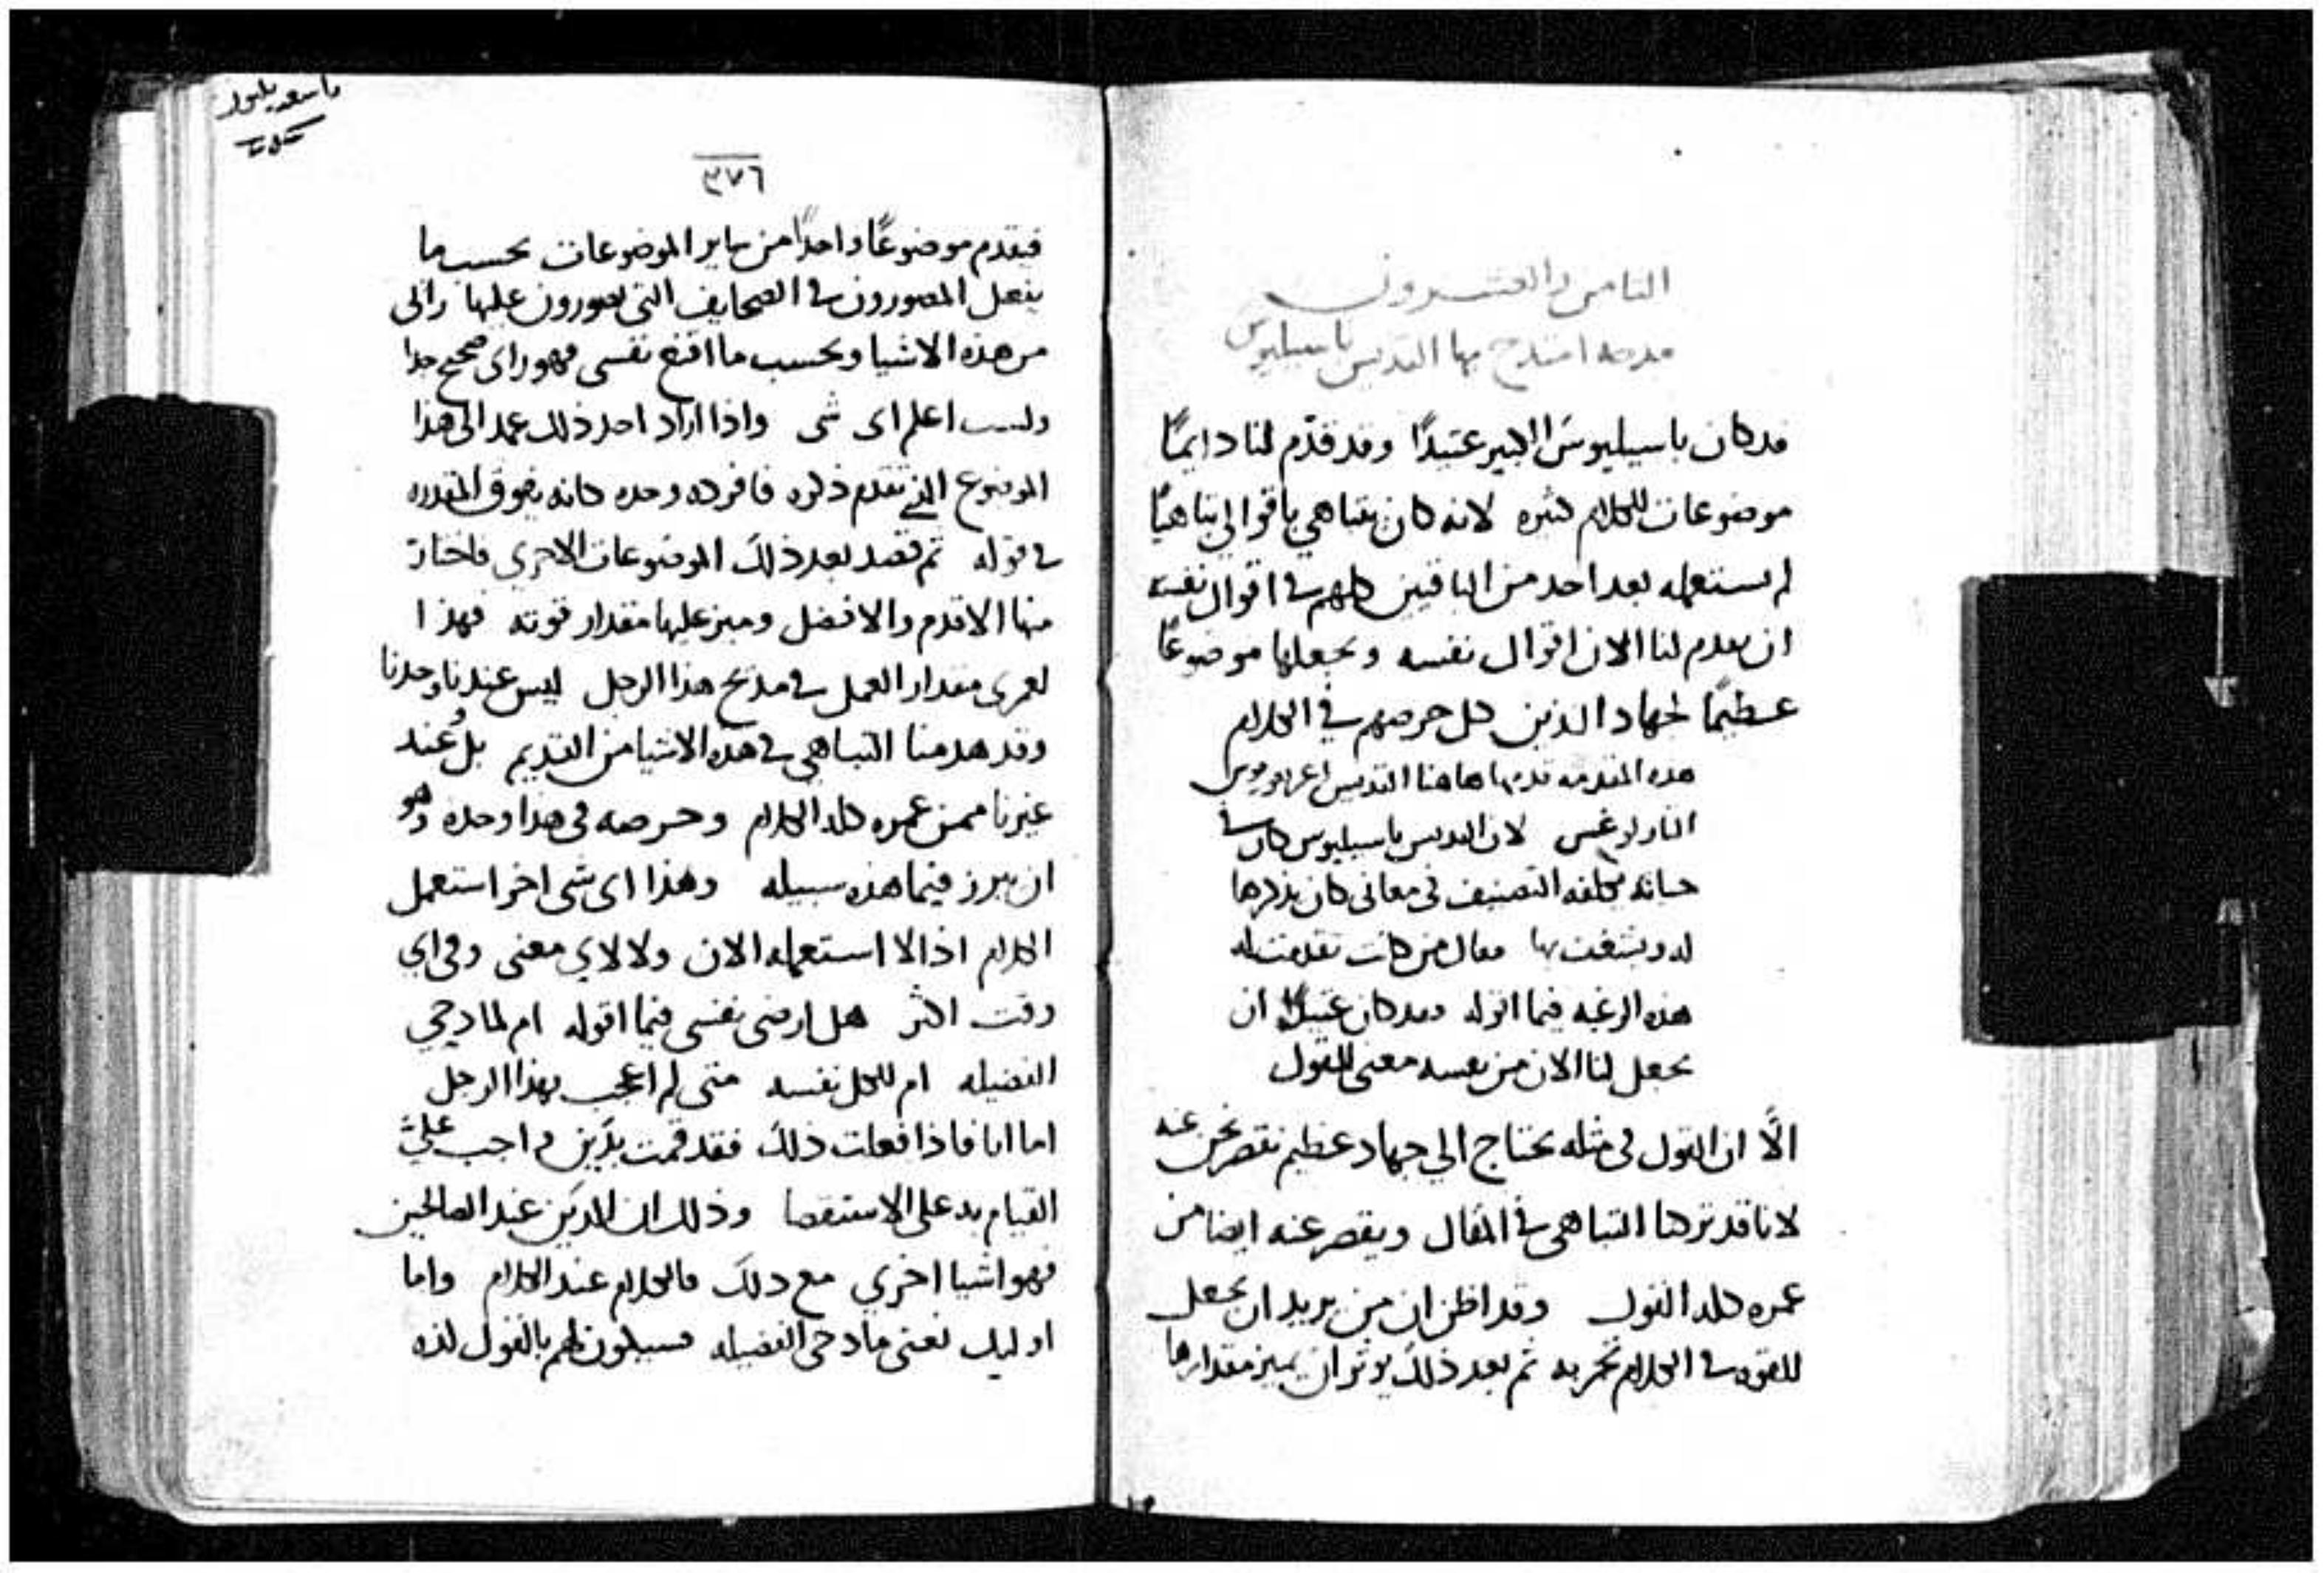 الثامن والعشرون
مدحه امتدح بها القديس باسيليوس
قد كان باسيليوس الكبير عتيدًا وقد قدّم لنا دايمًا
موضوعات للكلام كثيره لانه كان يتباهي باقوالي تباهيًا
لم يستعمله بعد احد من الباقين كلهم في اقوال نفسه
ان يقدم لنا الان اقوال نفسه ويجعلها موضوعًا
عظيمًا لجهاد الذين كل حرصهم في الكلام
هذه المقدمه قدمها هاهنا القديس اغريغوريوس
الثاولوغس لان القديس باسيليوس كان في
حياته يكلفه التصنيف في معاني كان يذكرها
له ويشغف بها فقال من كانت تقدمت له
هذه الرغبه فيما اقوله وقد كان عتيدًا ان
يجعل لنا الان من نفسه معنى للقول
الّا ان القول في مثله يحتاج الي جهاد عظيم نقصر نحن عنه
لانا قد تركنا التباهي في المقال ويقصر عنه ايضا من
عمره كله القول وقد اظن ان من يريد ان يجعل
للقوه في الكلام تجربه ثم بعد ذلك يوثر ان يميز مقدارها
٣٧٦
فيقدم موضوعًا واحدًا من ساير الموضوعات بحسب ما
يفعل المصورون في الصحايف التي يصورون عليها راى
من هذه الاشيا وبحسب ما اقنع نفسي فهو راى صحيح جدا
ولست اعلم اى شي واذا اراد احد ذلك عمد الى هذا
الموضوع الذي تقدم ذكره فافرده وحده كانه يفوق المقدره
في قوله ثم قصد بعد ذلك الموضوعات الاخري فاختار
منها الاقدم والافضل وميز عليها مقدار قوته فهذا
لعمرى مقدار العمل في مديح هذا الرجل ليس عندنا وحدنا
وقد هدمنا التباهي في هذه الاشيا من القديم بل عند
غيرنا ممن عمره كله الكلام وحرصه في هذا وحده وهو
ان يبرز فيما هذه سبيله وهذا اى شي اخر استعمل
الكلام اذا لا استعمله الان ولا لاي معنى وفي اي
وقت اكثر هل ارضي نفسي فيما اقوله ام لمادحي
الفضيله ام للكل نفسه متى لم اعجب بهذا الرجل
اما انا فاذا فعلت ذلك فقد قمت بدَين واجب عليّ
القيام به على الاستقصا وذلك ان الدَين عند الصالحين
فهو اشيا اخري مع ذلك فالكلام عند الكلام واما
اوليك نعني مادحي الفضيله فسيكون لهم بالقول لذه